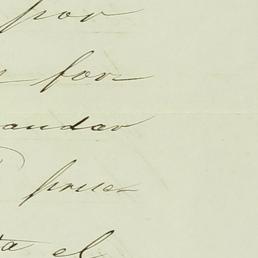 por
for
andar
pues
ta el